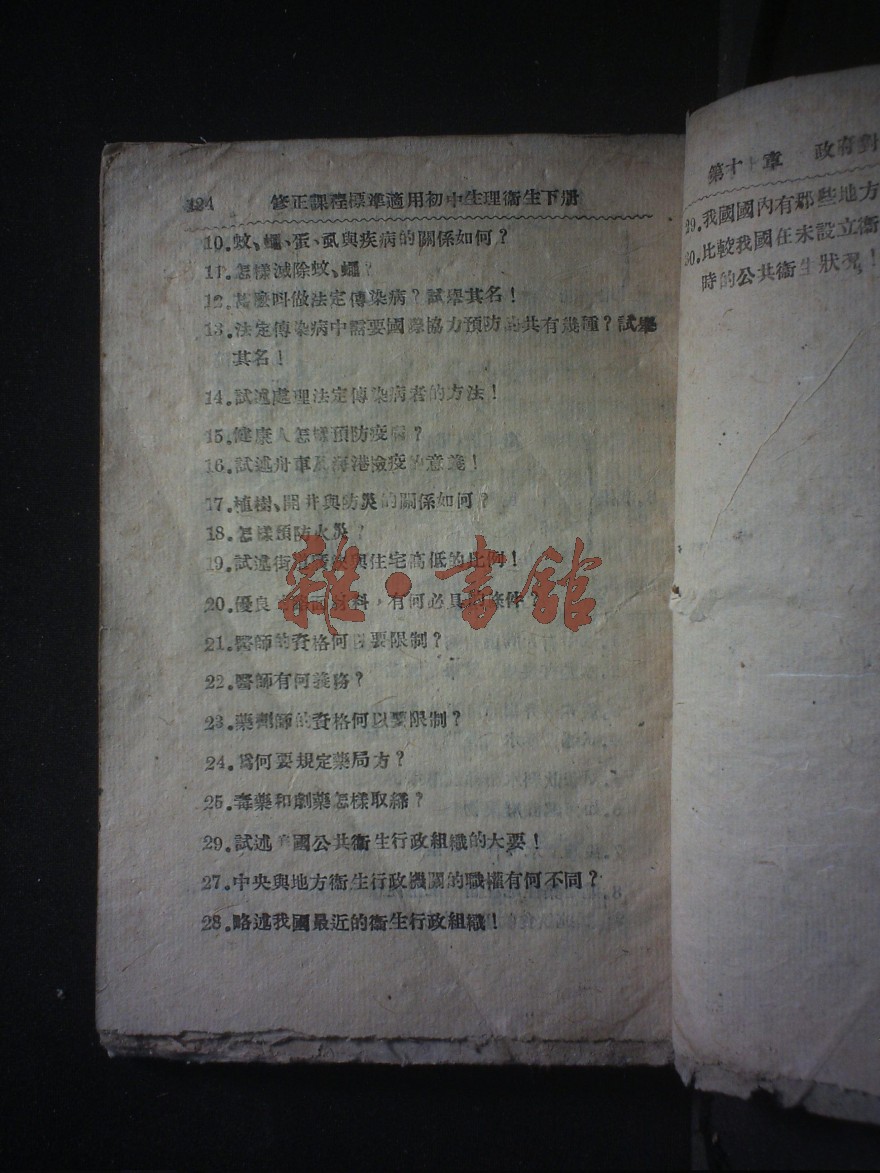 124 修正課程標準適用初中生理衞生下册
10.蚊、蠅、蚤、虱與疾病的關係如何？
11.怎樣滅除蚊、蠅？
12.甚麼叫做法定傳染病？試舉其名！
13.法定傳染病中需要國際協力預防的共有幾種？試舉
其名！
14.試述處理法定傳染病者的方法！
15.健康人怎樣預防疫病？
16.試述舟車及海港檢疫的意義！
17.植樹、開井與防災的關係如何？
18.怎樣預防火災？
19.試述街道廣狹與住宅高低的比例！
20.優良 材料，有何必具的條件？
21.醫師的資格何以要限制？
22.醫師有何義務？
23.藥劑師的資格何以要限制？
24.爲何要規定藥局方？
25.毒藥和劇藥怎樣取締？
29.試述 國公共衞生行政組織的大要！
27.中央與地方衞生行政機關的職權有何不同？
28.略述我國最近的衞生行政組織！
雜·書館
第十十章 政府對
29.我國國內有那些地方
30.比較我國在未設立衞
時的公共衞生狀況！